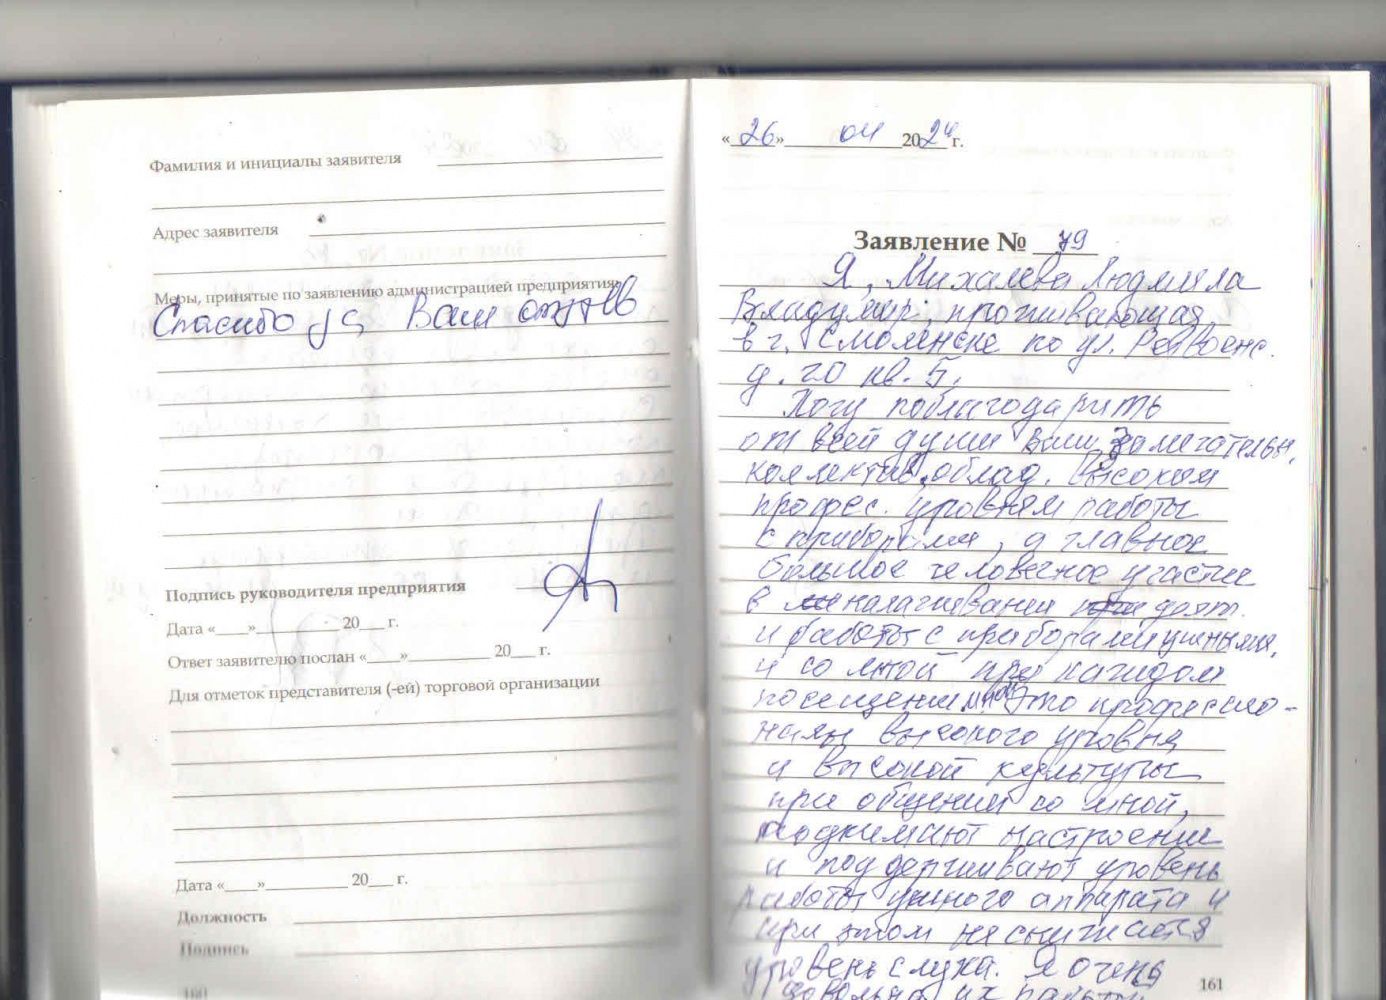 Фамилия и инициалы заявителя
Адрес заявителя
Меры, принятые по заявлению администрацией предприятия:
Спасибо за Ваш отзыв
Подпись руководителя предприятия
Дата «___»__________ 20___ г.
Ответ заявителю послан «___»__________ 20___ г.
Для отметок представителя (-ей) торговой организации
Дата «___»__________ 20___ г.
Должность
Подпись
160
«26» 04 2024 г.
Заявление № 79
Я, Михалева Людмила
Владимир., проживающая
в г. Смоленске по ул.
д. 20 кв. 5.
Хочу поблагодарить
от всей души Ваш замечательн.
коллектив, облад. высоким
професс. уровнем работы
с приборами, а главное
большое человечное участие
в налаживании
и работы с приборами ушными,
и со мной при каждом
посещении Это профессио-
налы высокого уровня
и высокой культуры
при общении со мной,
поднимают настроение
и поддерживают уровень
работы ушного аппарата и
при этом не снижается
уровень слуха. Я очень
довольна их работой
161